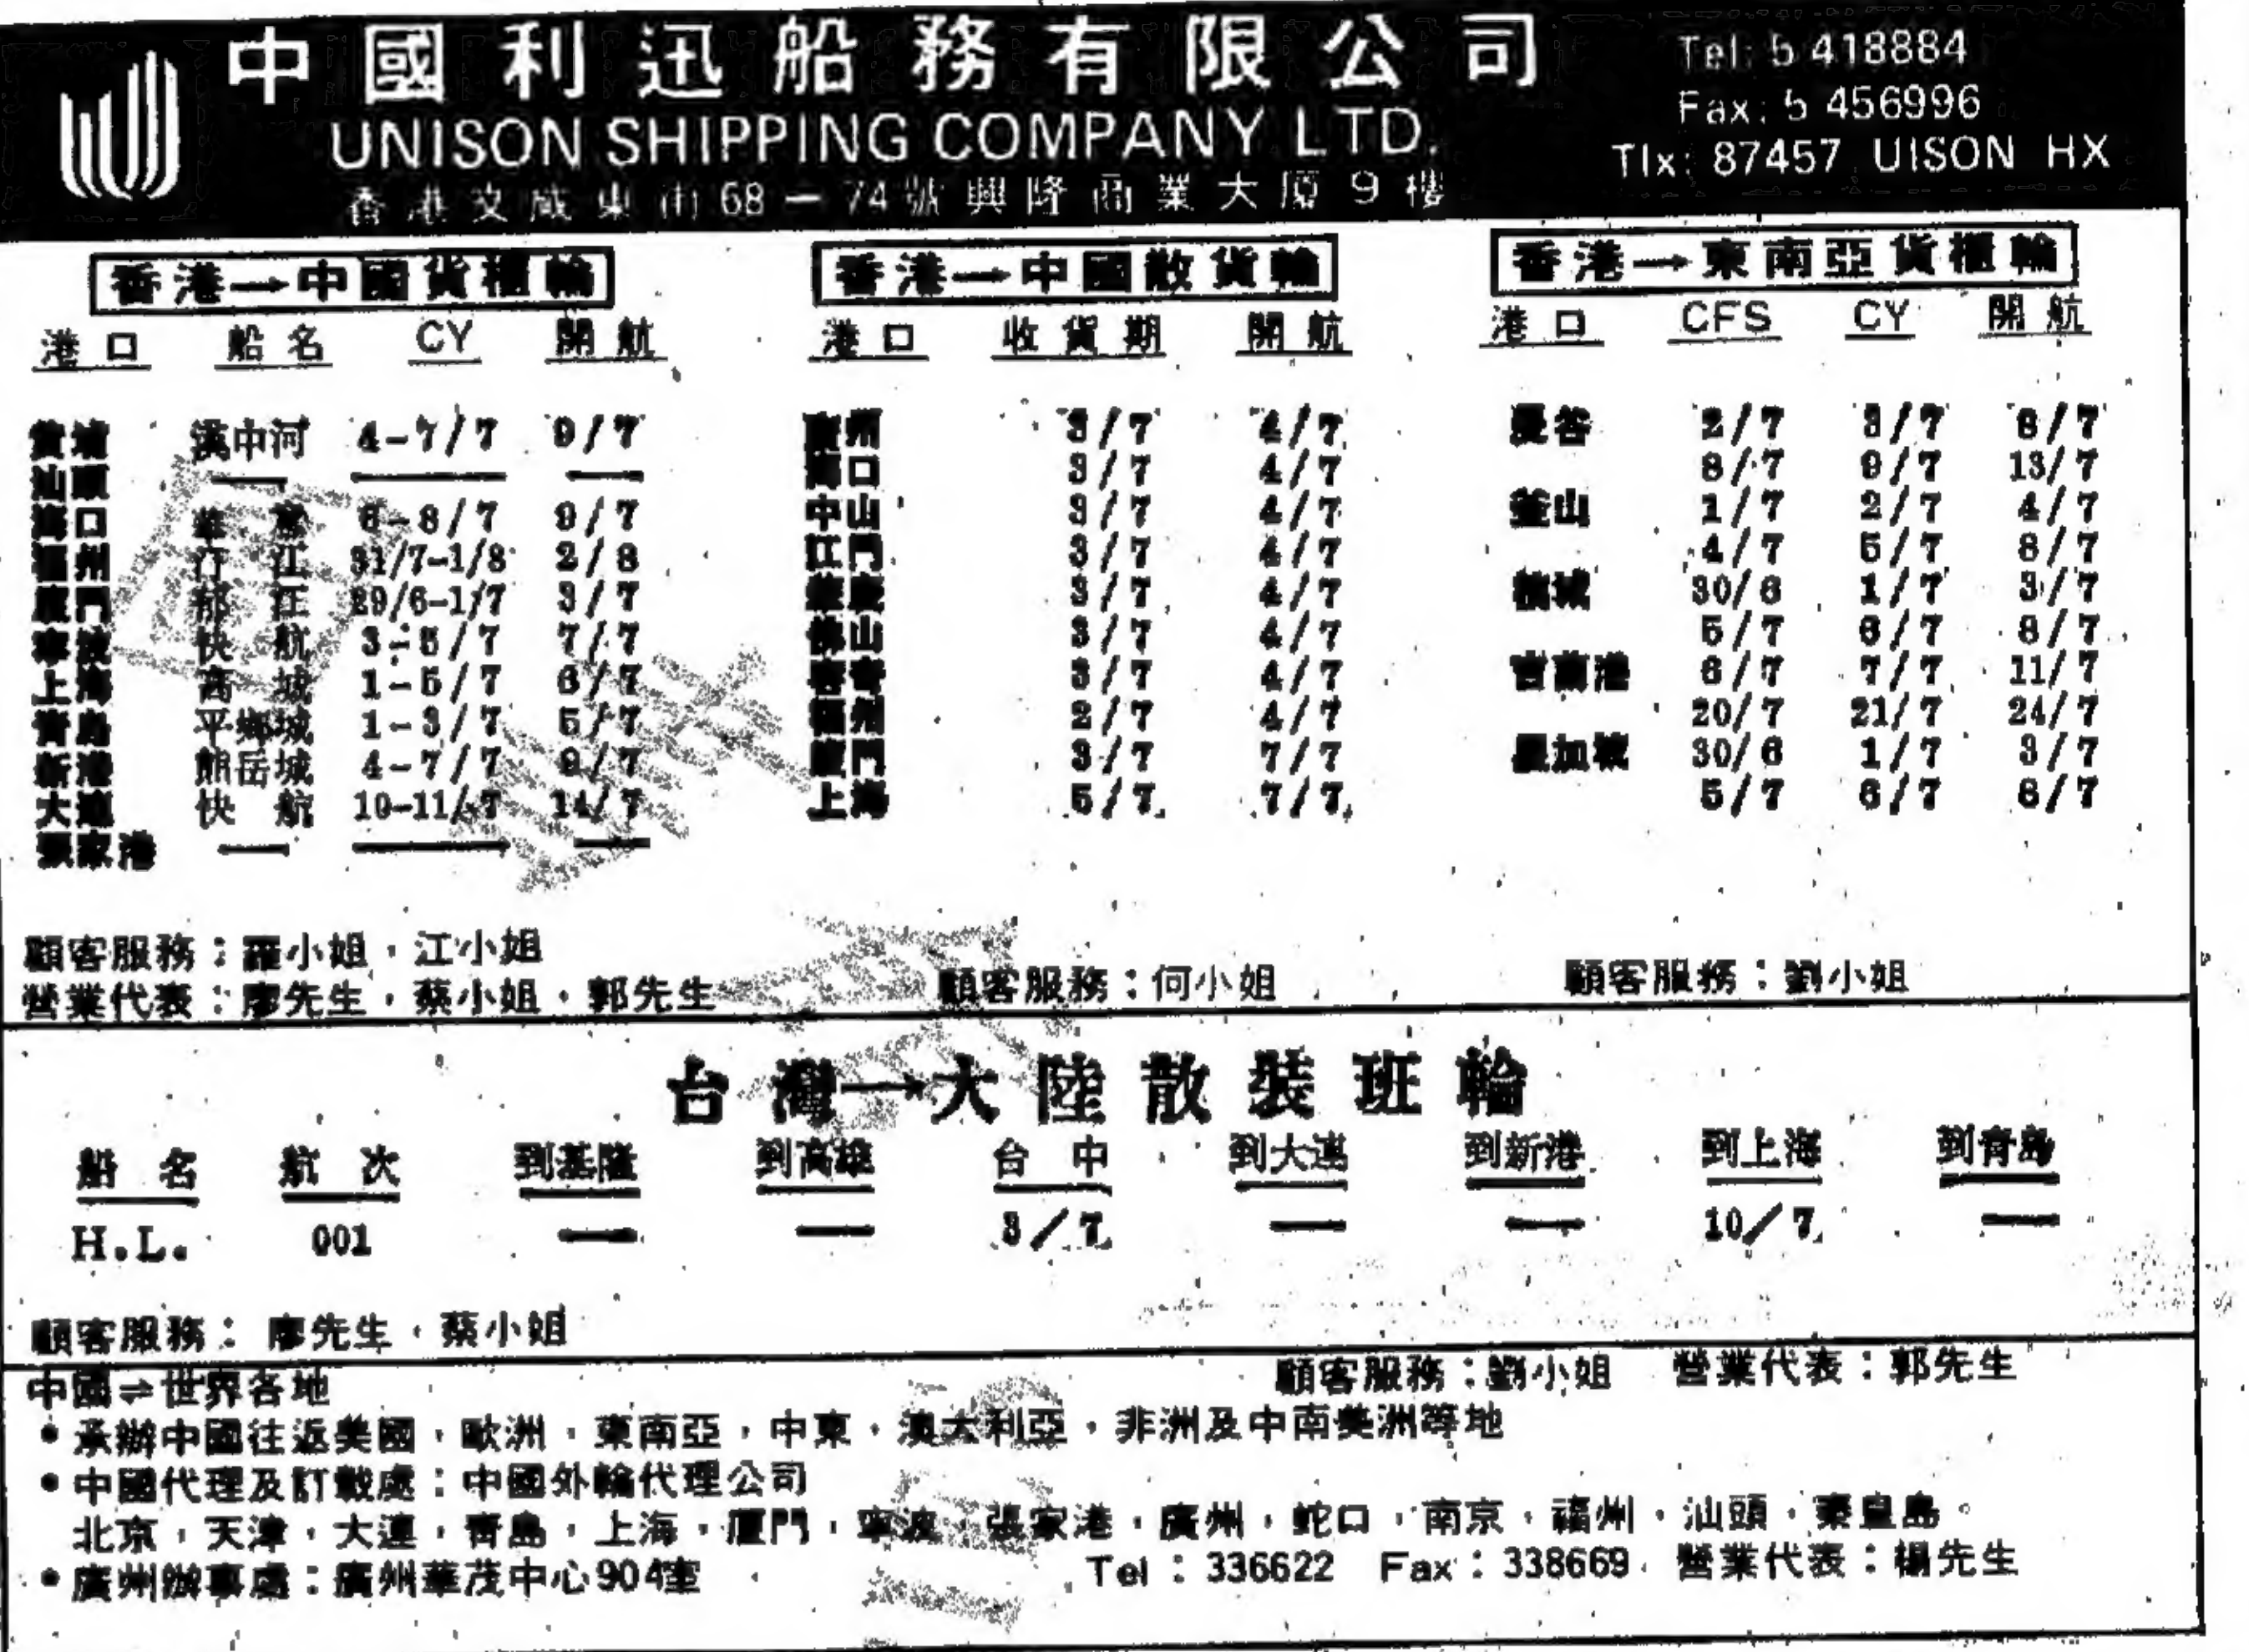 中國利迅船務有限公司
UNISON SHIPPING COMPANY LTD.
香港文咸東街68－74號興隆商業大厦9樓
Tel: 5 418884
Fax: 5 456996
Tlx: 87457 UISON HX
香港→中國貨櫃輪
港口 船名 CY 開航
黃埔 漢中河 4-7/7 9/7
汕頭 — — —
海口 6-8/7 9/7
福州 江 31/7-1/8 2/8
廈門 郁江 29/6-1/7 3/7
寧波 快航 3-5/7 7/7
上海 高城 1-5/7 6/7
青島 平鄉城 1-3/7 5/7
新港 熊岳城 4-7/7 9/7
大連 快航 10-11/7 14/7
張家港 — — —
顧客服務：羅小姐，江小姐
營業代表：廖先生，蔡小姐，郭先生
香港→中國散貨輪
港口 收貨期 開航
廣州 3/7 4/7
海口 3/7 4/7
中山 3/7 4/7
江門 3/7 4/7
3/7 4/7
佛山 3/7 4/7
3/7 4/7
福州 2/7 4/7
廈門 3/7 7/7
上海 5/7 7/7
顧客服務：何小姐
香港→東南亞貨櫃輪
港口 CFS CY 開航
曼谷 2/7 3/7 8/7
8/7 9/7 13/7
釜山 1/7 2/7 4/7
4/7 5/7 8/7
檳城 30/6 1/7 3/7
5/7 6/7 8/7
吉蘭港 6/7 7/7 11/7
20/7 21/7 24/7
星加坡 30/6 1/7 3/7
5/7 6/7 6/7
顧客服務：劉小姐
台灣→大陸散裝班輪
船名 航次 到基隆 到高雄 台中 到大連 到新港 到上海 到青島
H.L. 001 — — 3/7 — — 10/7 —
顧客服務：廖先生，蔡小姐
中國⇌世界各地
顧客服務：劉小姐 營業代表：郭先生
•承辦中國往返美國，歐洲，東南亞，中東，澳大利亞，非洲及中南美洲等地
•中國代理及訂載處：中國外輪代理公司
北京，天津，大連，青島，上海，廈門，寧波，張家港，廣州，蛇口，南京，福州，汕頭，秦皇島。
•廣州辦事處：廣州華茂中心904室 Tel：336622 Fax：338669 營業代表：楊先生